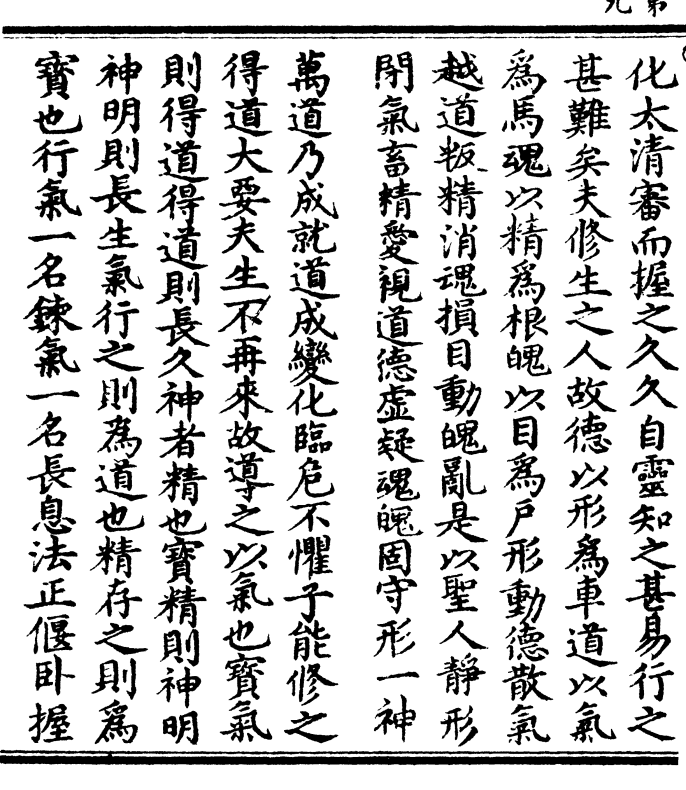 化太清審而握之久久自靈知之甚易行之
甚難矣夫修生之人故德以形爲車道以氣
爲馬魂以精爲根魄以目爲戶形動德散氣
越道叛精消魂損目動魄亂是以聖人靜形
閉氣畜精愛視道德虛疑魂魄固守形一神
萬道乃成就道成變化臨危不懼子能修之
得道大要夫生不再來故導之以氣也寶氣
則得道得道則長久神者精也寶精則神明
神明則長生氣行之則為道也精存之則爲
寶也行氣一名鍊氣一名長息法正偃卧握